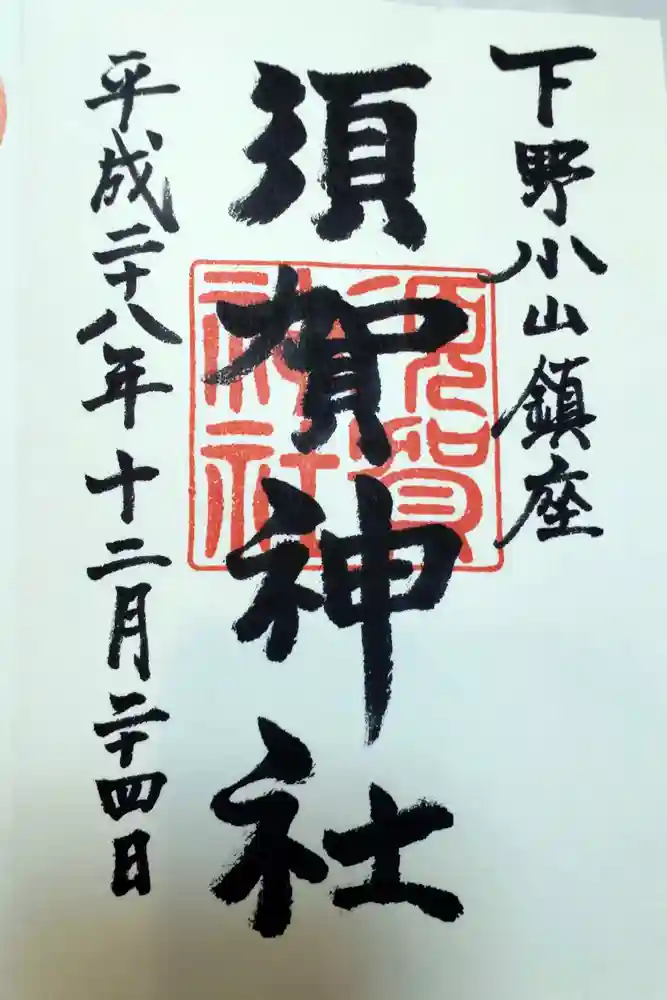 下野小山鎮座
須賀神社
須賀
神社
平成二十八年十二月二十四日